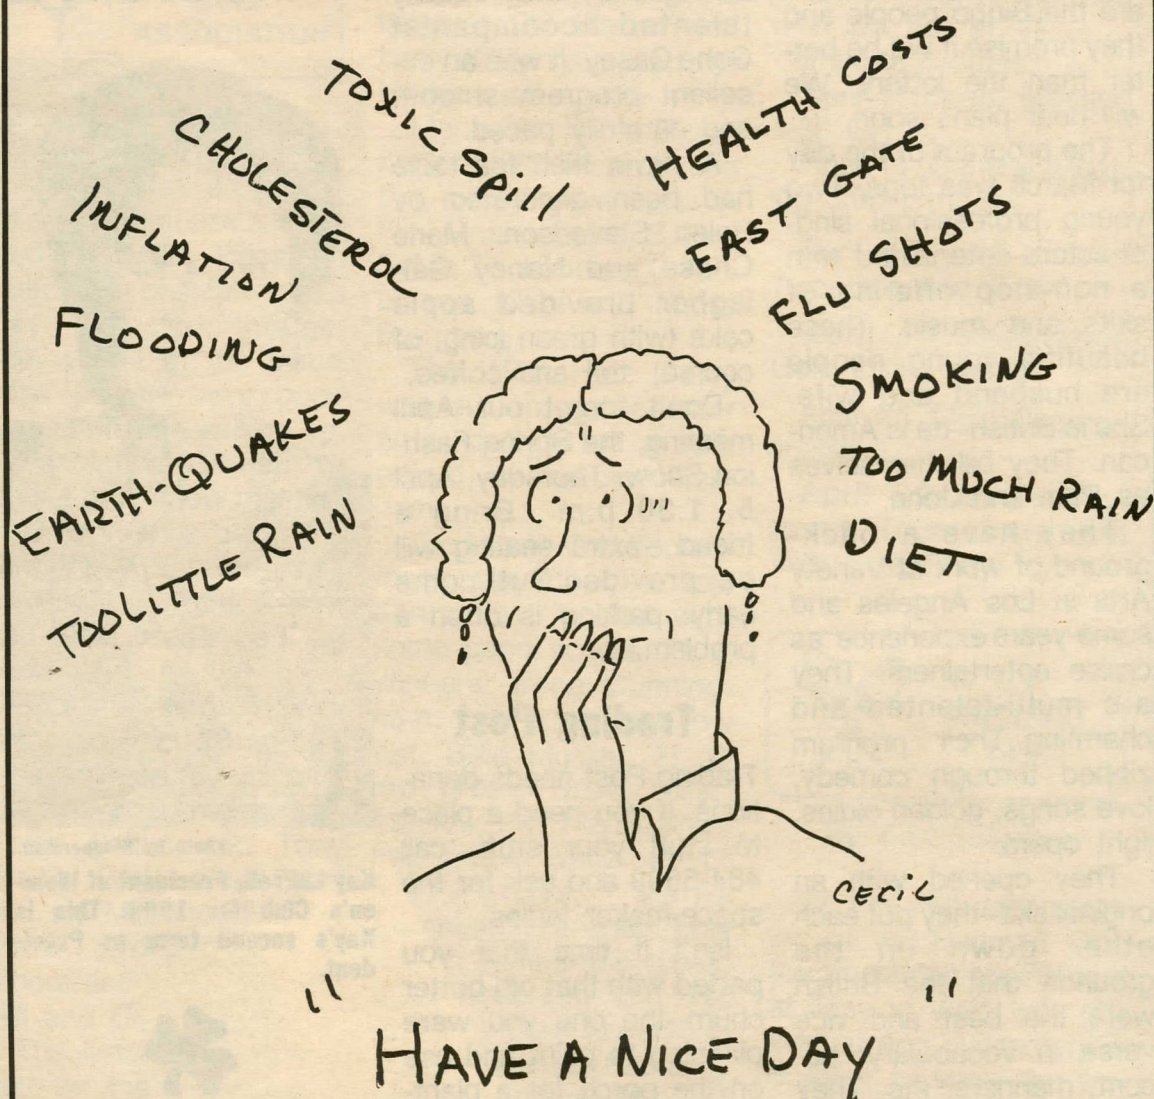 TOXIC SPILL
CHOLESTEROL
INFLATION
FLOODING
EARTH-QUAKES
TOO LITTLE RAIN
HEALTH COSTS
EAST GATE
FLU SHOTS
SMOKING
TOO MUCH RAIN
DIET
CECIL
"HAVE A NICE DAY"